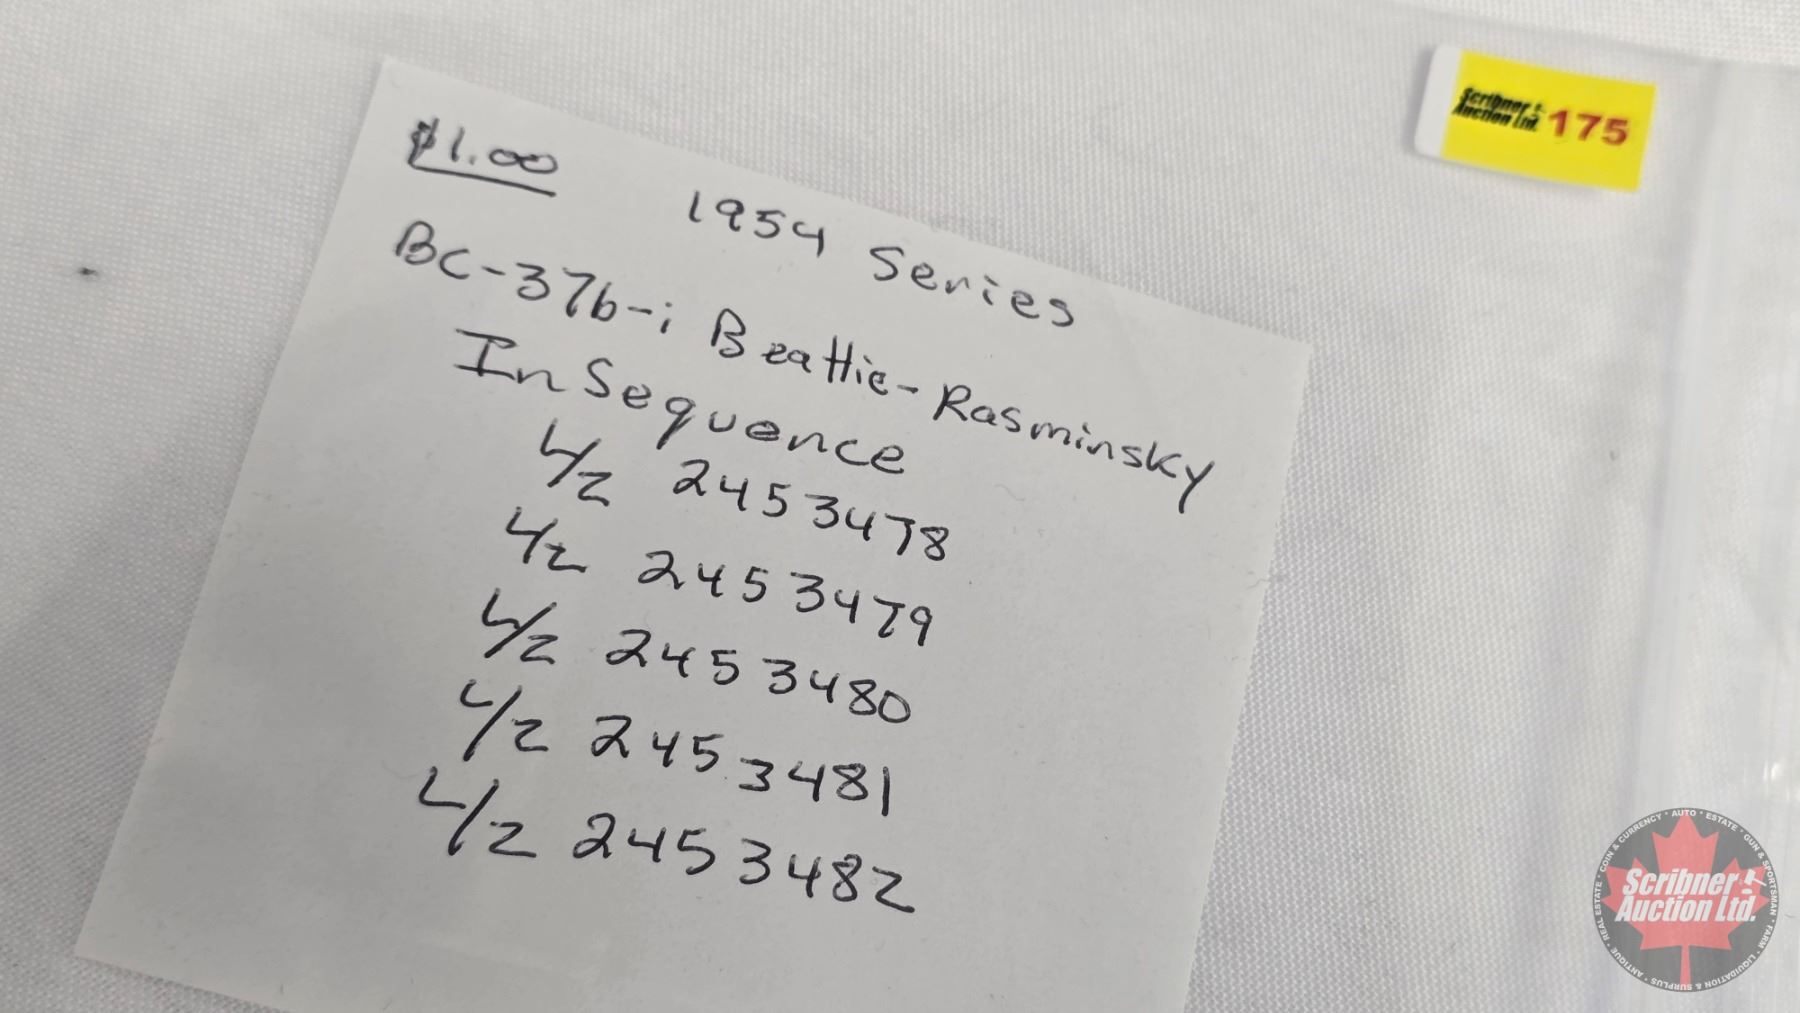 $1.00 1954 Series
BC-37b-i Beattie-Rasminsky
In Sequence
L/Z 2453478
L/Z 2453479
L/Z 2453480
L/Z 2453481
L/Z 2453482
Scribner Auction Ltd. 175
Scribner
Auction Ltd.
REAL ESTATE · COIN & CURRENCY · AUTO · ESTATE · GUN & SPORTSMAN · FARM · LIQUIDATION & SURPLUS · ANTIQUE ·